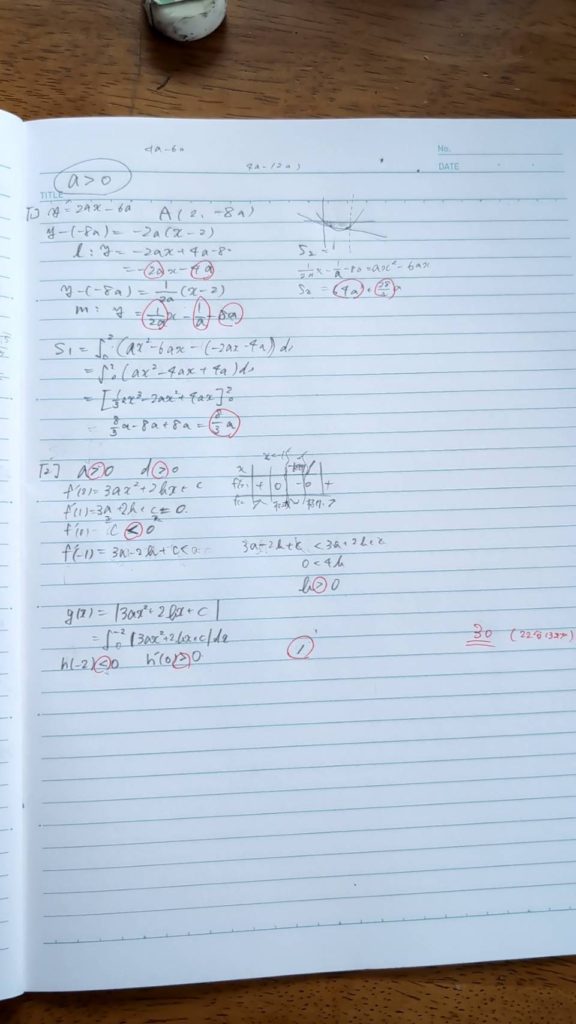 4a-6a
4a-12a)
No.
DATE
TITLE
a>0
[1] y'=2ax-6a A(2, -8a)
y-(-8a)=-2a(x-2)
l: y=-2ax+4a-8
=-2ax-4a
y-(-8a)=\frac{1}{2a}(x-2)
m: y=\frac{1}{2a}x-\frac{1}{a}-8a
S₂=
\frac{1}{2a}x-\frac{1}{a}-8a=ax²-6ax
S₁=∫₀²(ax²-6ax-(-2ax-4a))dx
=∫₀²(ax²-4ax+4a)dx
=[\frac{1}{3}ax³-2ax²+4ax]₀²
=\frac{8}{3}a-8a+8a=\frac{8}{3}a
[2] a>0 d>0
f'(x)=3ax²+2bx+c
f'(0)=c<0
f'(-1)=3a-2b+c<0
3a-2b+c<3a+2b+c
0<4b
b>0
g(x)=|3ax²+2bx+c|
=∫₀⁻²|3ax²+2bx+c|dx
h(-2)<0 h'(0)>0
1
30